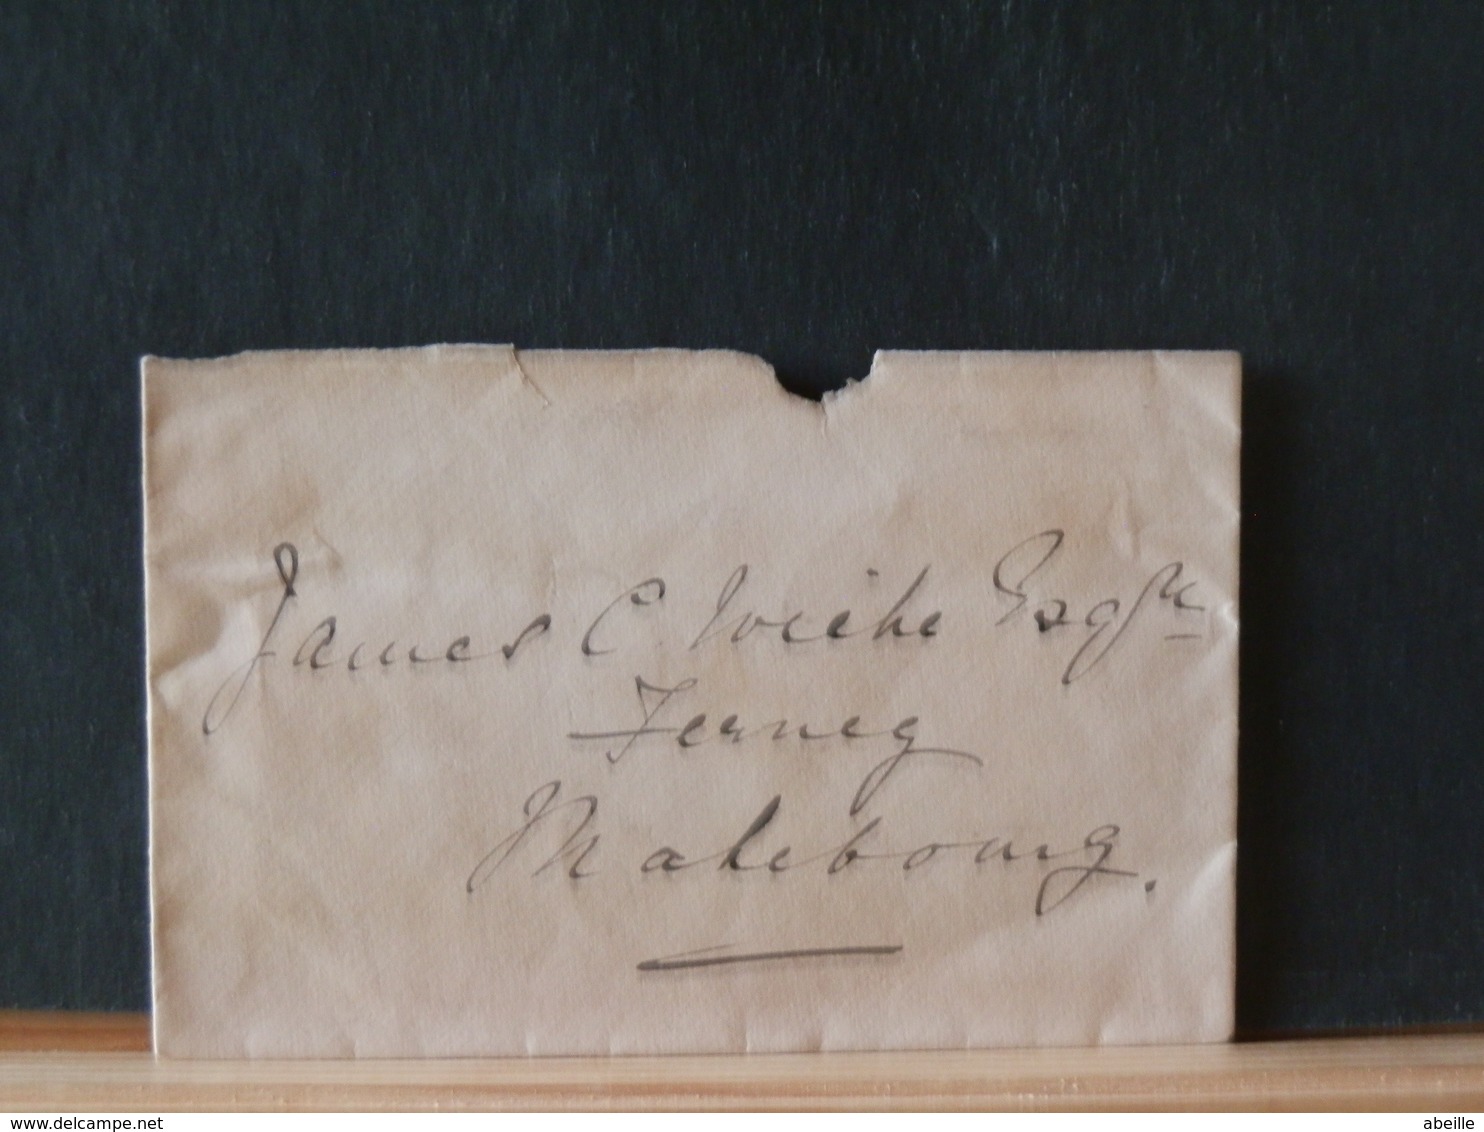 James C. Wiehe Esqre
Ferney
Mahebourg.
www.delcampe.net
abeille